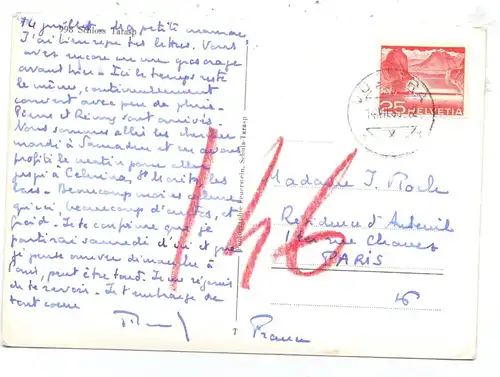 14 juillet. Ma petite maman,
998 Schloss Tarasp
J'ai bien reçu tes lettres. Vous
avez encore eu un gros orage
avant hier. Ici le temps reste
le même, continuellement
couvert avec peu de pluie.
Pierre et Rémy sont arrivés.
Nous sommes allés les chercher
mardi à Samaden et on avait
profité le matin pour aller
jusqu'à Celerina, St Moritz les
bains. Beaucoup moins calme
qu'ici beaucoup d'autos, et
froid. Je te confirme que je
partirai samedi d'ici et que
je pense arriver dimanche à
Paris, peut être tard. Je me réjouis
de te revoir. Je t'embrasse de
tout coeur
25 HELVETIA
Feuerstein, Schuls-Tarasp
146
Madame J. Roche
Résidence d'Auteuil
rue Chanez
PARIS
16
T
France